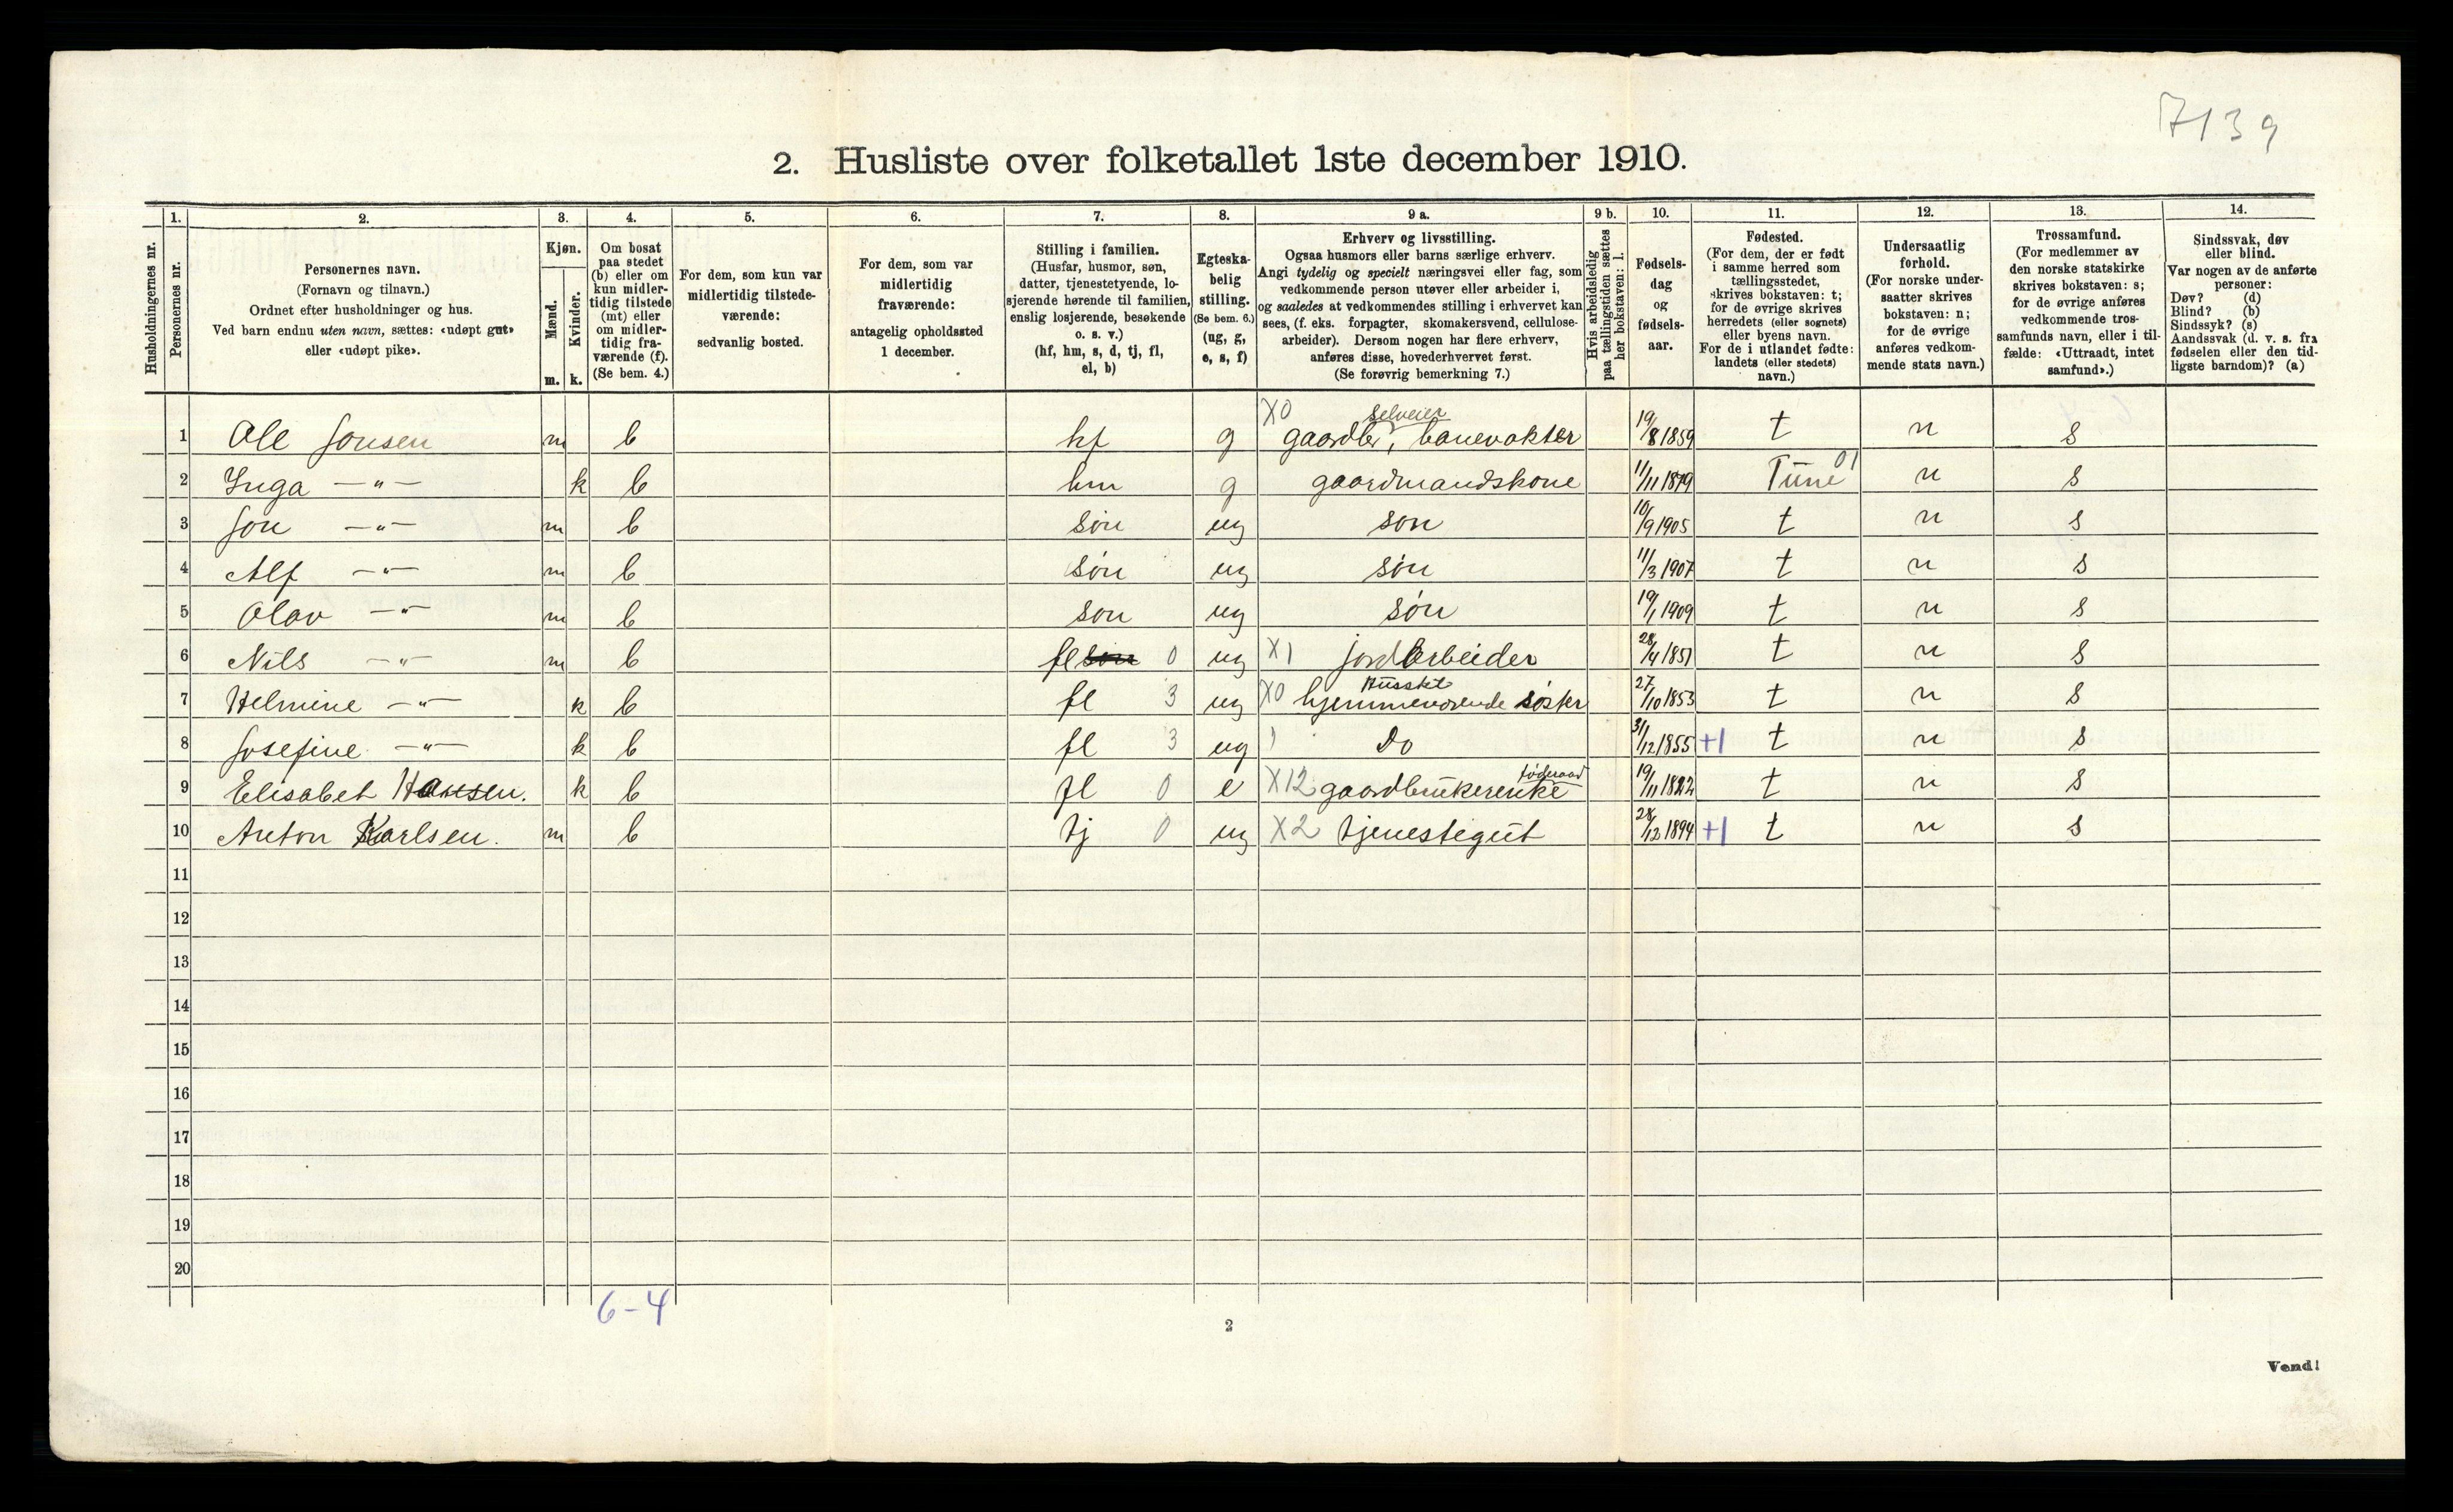 7139
2. Husliste over folketallet 1ste december 1910.
Husholdningernes nr.
1.
Personernes nr.
2.
Personernes navn.
(Fornavn og tilnavn.)
Ordnet efter husholdninger og hus.
Ved barn endnu uten navn, sættes: «udøpt gut»
eller «udøpt pike».
3.
Kjøn.
Mænd.
Kvinder.
m. k.
4.
Om bosat
paa stedet
(b) eller om
kun midler-
tidig tilstede
(mt) eller
om midler-
tidig fra-
værende (f).
(Se bem. 4.)
5.
For dem, som kun var
midlertidig tilstede-
værende:
sedvanlig bosted.
6.
For dem, som var
midlertidig
fraværende:
antagelig opholdssted
1 december.
7.
Stilling i familien.
(Husfar, husmor, søn,
datter, tjenestetyende, lo-
sjerende hørende til familien,
enslig losjerende, besøkende
o. s. v.)
(hf, hm, s, d, tj, fl,
el, b)
8.
Egteska-
belig
stilling.
(Se bem. 6.)
(ug, g,
e, s, f)
9 a.
Erhverv og livsstilling.
Ogsaa husmors eller barns særlige erhverv.
Angi tydelig og specielt næringsvei eller fag, som
vedkommende person utøver eller arbeider i,
og saaledes at vedkommendes stilling i erhvervet kan
sees, (f. eks. forpagter, skomakersvend, cellulose-
arbeider). Dersom nogen har flere erhverv,
anføres disse, hovederhvervet først.
(Se forøvrig bemerkning 7.)
9 b.
Hvis arbeidsledig
paa tællingstiden sættes
her bokstaven: l.
10.
Fødsels-
dag
og
fødsels-
aar.
11.
Fødested.
(For dem, der er født
i samme herred som
tællingsstedet,
skrives bokstaven: t;
for de øvrige skrives
herredets (eller sognets)
eller byens navn.
For de i utlandet fødte:
landets (eller stedets)
navn.)
12.
Undersaatlig
forhold.
(For norske under-
saatter skrives
bokstaven: n;
for de øvrige
anføres vedkom-
mende stats navn.)
13.
Trossamfund.
(For medlemmer av
den norske statskirke
skrives bokstaven: s;
for de øvrige anføres
vedkommende tros-
samfunds navn, eller i til-
fælde: «Uttraadt, intet
samfund».)
14.
Sindssvak, døv
eller blind.
Var nogen av de anførte
personer:
Døv? (d)
Blind? (b)
Sindssyk? (s)
Aandssvak (d. v. s. fra
fødselen eller den tid-
ligste barndom)? (a)
X0 selveier
1 Ole Jonsen m b hf g gaardbr, banevokter 19/8 1859 t n s
2 Inga —"— k b hm g gaardmandskone 11/11 1879 Tune 01 n s
3 Jon —"— m b søn ug søn 10/9 1905 t n s
4 Alf —"— m b søn ug søn 11/3 1907 t n s
5 Olav —"— m b søn ug søn 19/1 1909 t n s
6 Nils —"— m b fl søn 0 ug X1 jordarbeider 28/4 1851 t n s
Husstel
7 Helmine —"— k b fl 3 ug X0 hjemmeværende søster 27/10 1853 t n s
8 Josefine —"— k b fl 3 ug Do 31/12 1855 +1 t n s
føderaad
9 Elisabet Hansen. k b fl 0 e X12 gaardbrukerenke 19/11 1822 t n s
10 Anton Karlsen. m b tj 0 ug X2 tjenestegut 28/12 1894 +1 t n s
11
12
13
14
15
16
17
18
19
20
6-4
2
Vend!